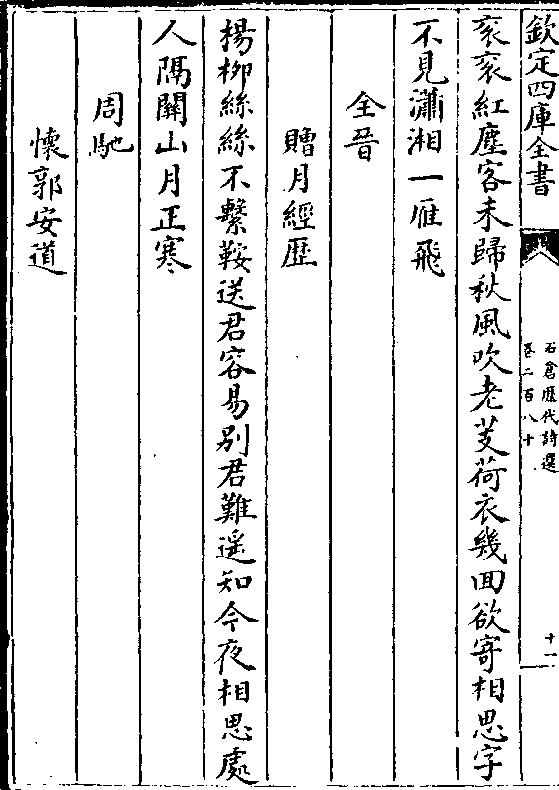 欽定四庫全書
石倉歴代詩選
卷二百八十
十一
衮衮紅塵客未歸秋風吹老芰荷衣幾回欲寄相思字
不見瀟湘一雁飛
全晉
贈月經歴
楊柳絲絲不繫鞍送君容易别君難遥知今夜相思處
人隔關山月正寒
周馳
懷郭安道